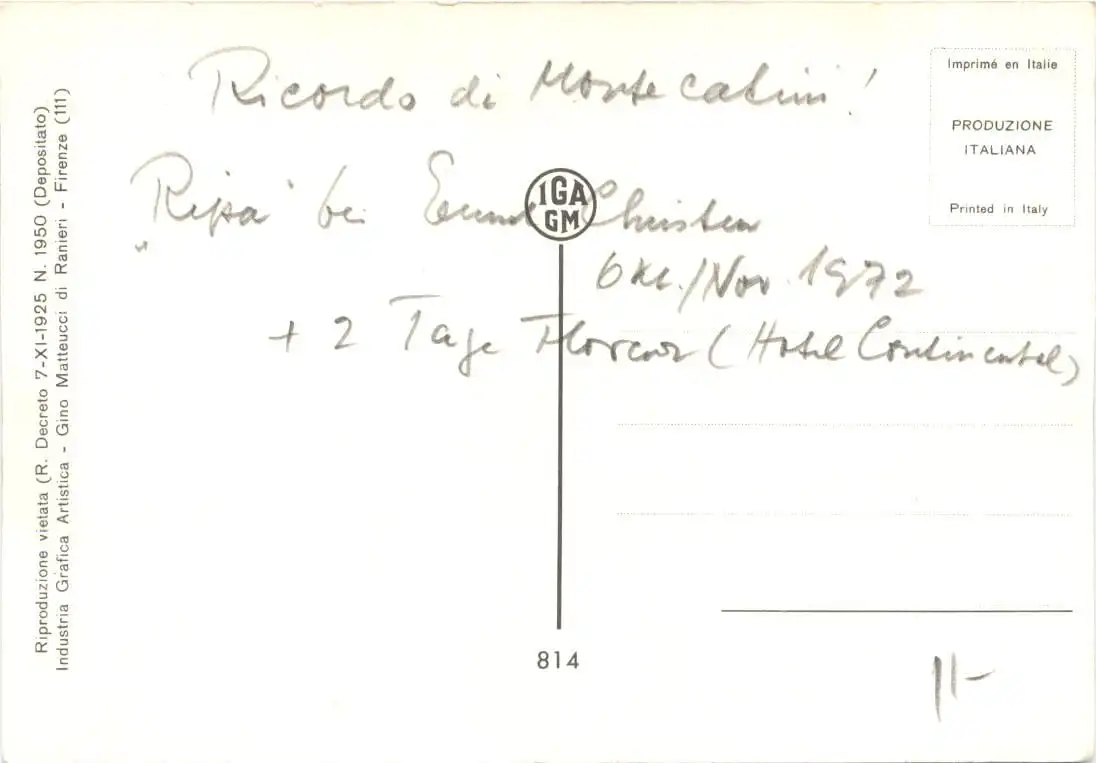 Ricordo di Montecatini!
"Ripa" bei Christen
Okt./Nov. 1972
+ 2 Tage Florenz (Hotel Continental)
Imprimé en Italie
PRODUZIONE
ITALIANA
Printed in Italy
IGA
GM
Riproduzione vietata (R. Decreto 7-XI-1925 N. 1950 (Depositato)
Industria Grafica Artistica - Gino Matteucci di Ranieri - Firenze (111)
814
11-